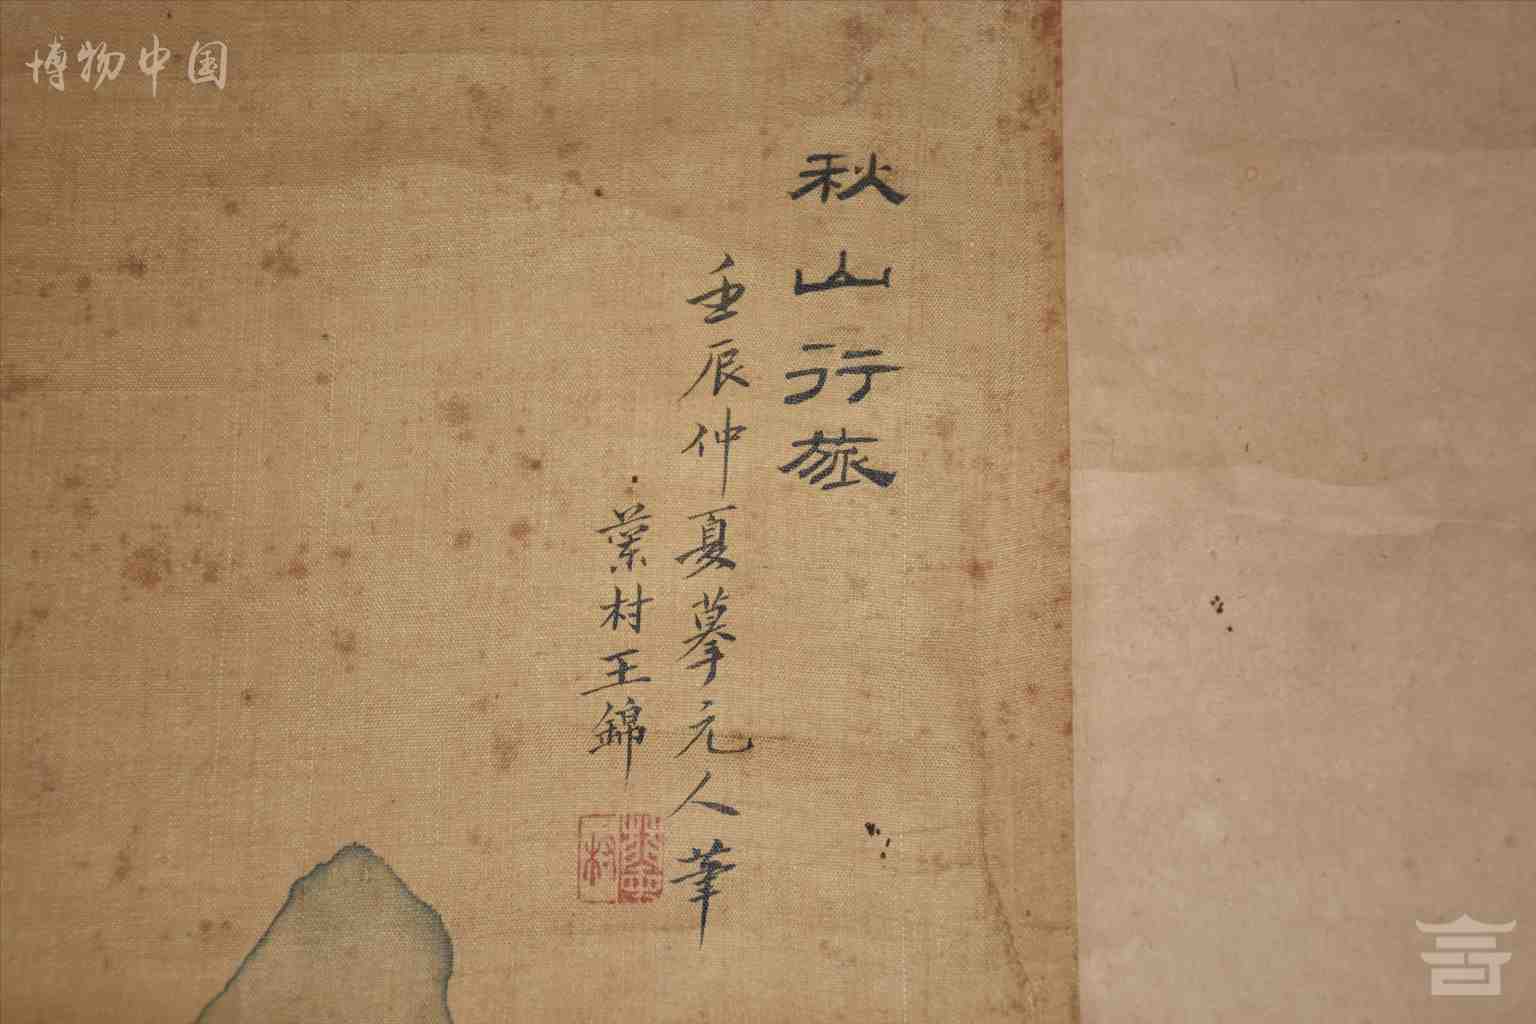 博物中国
秋山行旅
壬辰仲夏摹元人筆
葉村王錦